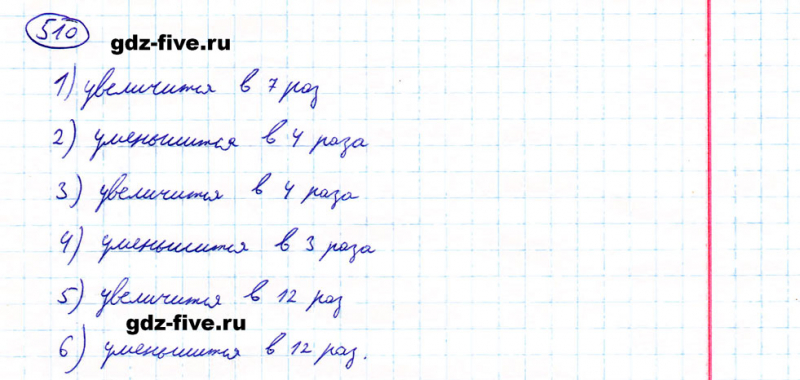 510
gdz-five.ru
1) увеличится в 7 раз
2) уменьшится в 4 раза
3) увеличится в 4 раза
4) уменьшится в 3 раза
5) увеличится в 12 раз
gdz-five.ru
6) уменьшится в 12 раз.